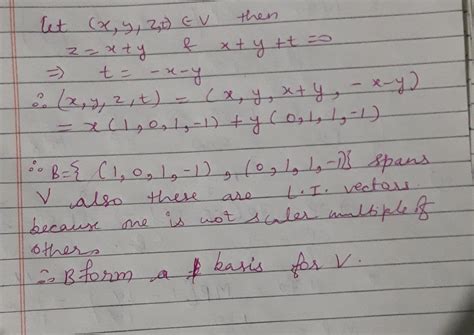 let (x, y, z, t) ∈ V then
z = x+y & x+y+t=0
⇒ t = -x-y
∴ (x, y, z, t) = (x, y, x+y, -x-y)
= x(1,0,1,-1) + y(0,1,1,-1)
∴ B={ (1,0,1,-1), (0,1,1,-1)} spans
V also these are L.I. vectors
because one is not scaler multiple of
other.
∴ B form a basis for V.